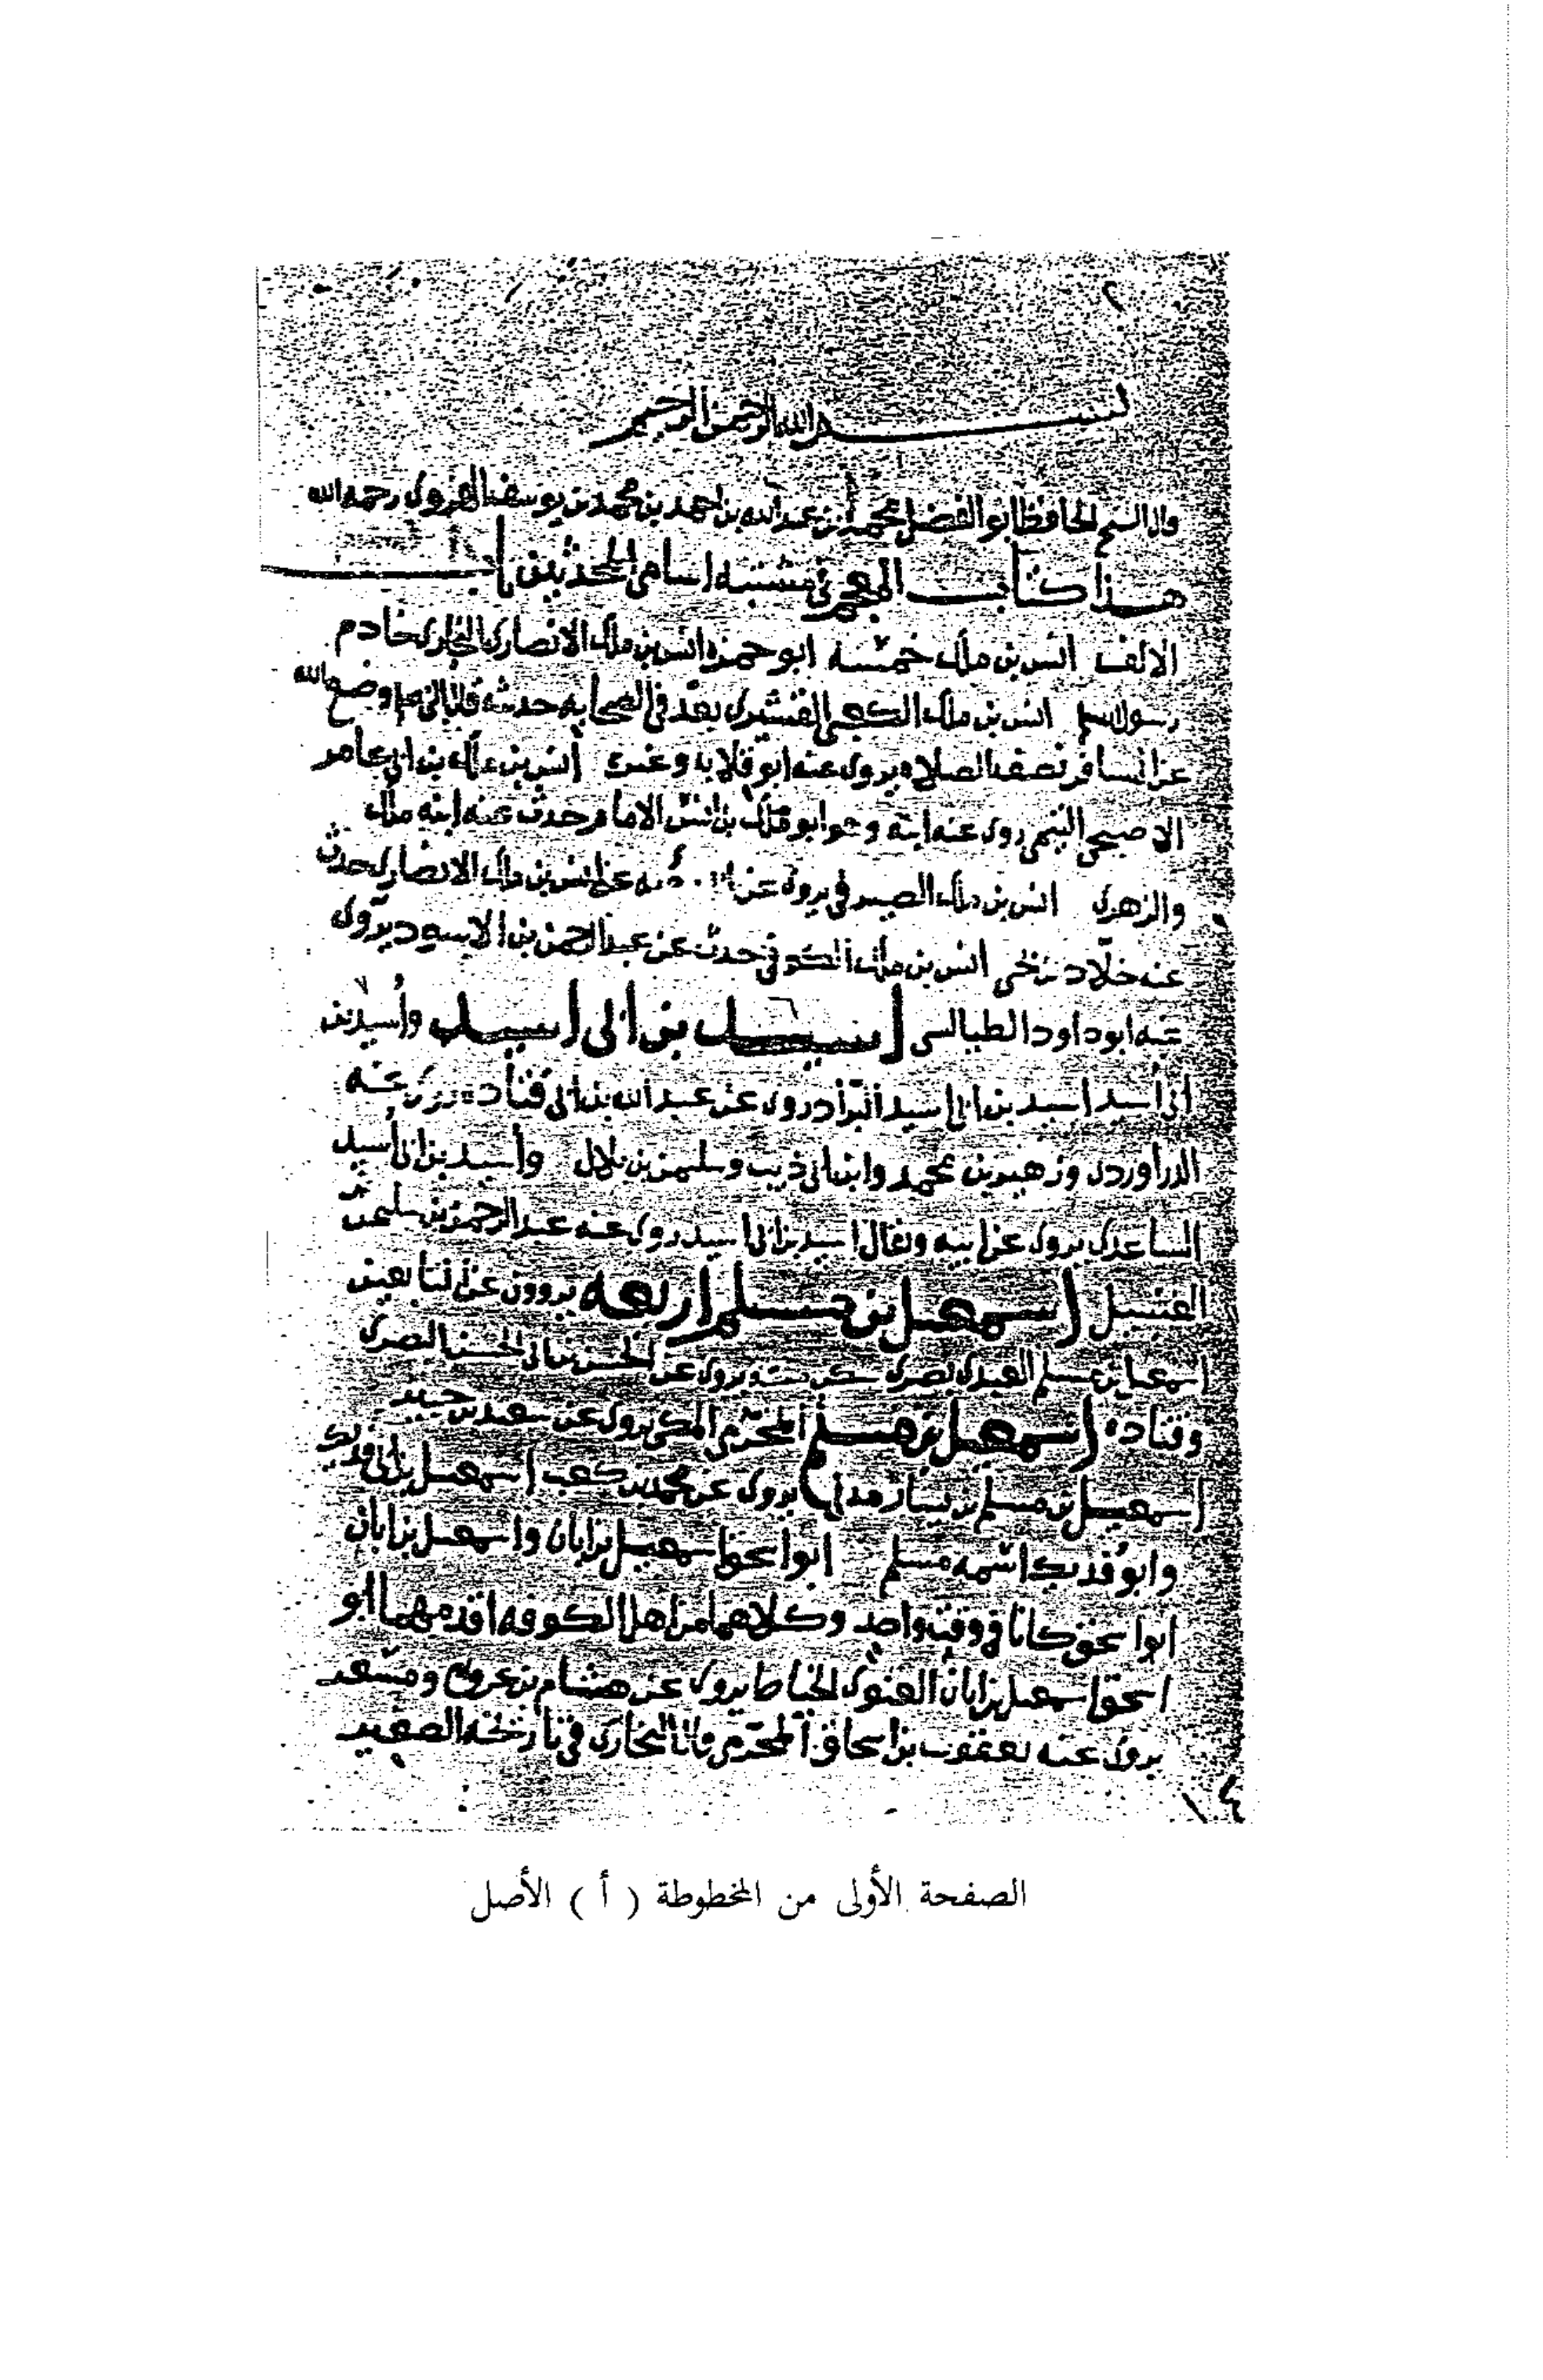 بسم الله الرحمن الرحيم
قال الشيخ الحافظ ابو الفضل محمد بن عبد الله بن احمد بن محمد بن يوسف الهروى رحمه الله
هذا كتاب المعجم فى مشتبه اسامى المحدثين باب
الالف انس بن ملك خمسة ابو حمزه انس بن ملك الانصارى النجارى خادم
رسول الله انس بن ملك الكعبى القشيرى يعد فى الصحابه حديثه وضع الله
عن المسافر نصف الصلاه يروى عنه ابو قلابه وغيره انس بن ملك بن ابى عامر
الاصبحى التيمى روى عنه ابنه وهو ابو ملك بن انس الامام حدث عنه ابنه ملك
والزهرى انس بن ملك الصيرفى يروى عن عن انس بن ملك الانصارى حدث
عنه خلاد بن يحى انس بن ملك الكوفى حدث عن عبد الرحمن بن الاسود يروى
عنه ابو داود الطيالسى اسيد بن ابى اسيد وأسيد بن
ابى أسيد اسيد بن ابى اسيد البراد روى عن عبد الله بن ابى قتاده روى عنه
الدراوردى وزهير بن محمد وابن ابى ذيب وسليمن بن بلال وأسيد بن ابى أسيد
الساعدى يروى عن ابيه ويقال اسيد بن ابى اسيد روى عنه عبد الرحمن بن سليمن
الغسيل اسمعيل بن مسلم اربعه يروون عن التابعين
اسمعيل بن مسلم العبدى بصرى يروى عن الحسن بن ابى الحسن البصرى
وقتاده اسمعيل بن مسلم المخزمى المكى يروى عن سعيد بن جبير
اسمعيل بن مسلم بن يسار مدنى يروى عن محمد بن كعب اسمعيل بن ابى فديك
وابو فديك اسمه مسلم ابو اسحق اسمعيل بن ابان واسمعيل بن ابان
ابو اسحق كانا فى وقت واحد وكلاهما من اهل الكوفه اقدمهما ابو
اسحق اسمعيل بن ابان الغنوى الخياط يروى عن هشام بن عروه ومسعر
يروى عنه يعقوب بن اسحاق المخرمى قال البخارى فى تاريخه الصغير
الصفحة الأولى من المخطوطة ( أ ) الأصل